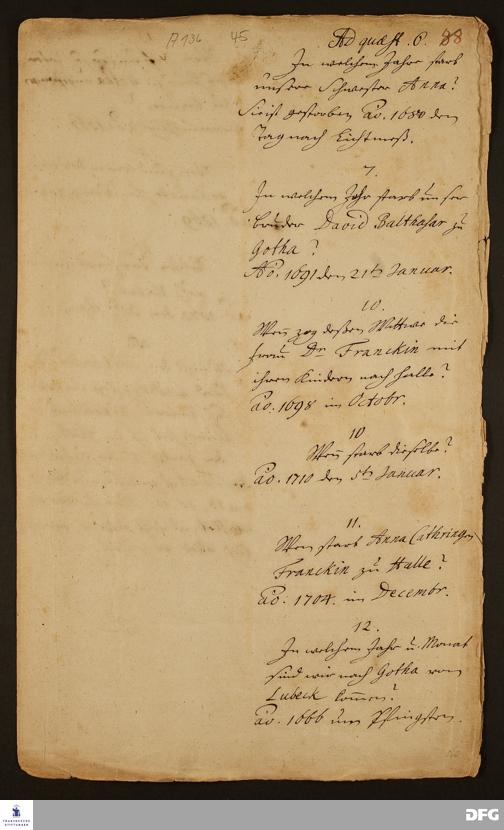 A 136 45 88
Ad quæst. 6.
In welchem Jahre starb
unsere Schwester Anna?
Sie ist gestorben Ao. 1680 den
Tag nach Lichtmeß.
7.
In welchem Jahr starb unser
bruder David Balthasar zu
Gotha?
Ao. 1691 den 21t Januar.
10.
Wen zog deßen Wittwe die
frau Dr Franckin mit
ihren Kindern nach Halle?
ao. 1698 im Octobr.
10
Wen starb dieselbe?
ao. 1710 den 5t Januar.
11.
Wen starb Anna Cathringen
Franckin zu Halle?
ao. 1704. im Decembr.
12.
In welchem Jahr u. Monat
sind wir nach Gotha von
Lubeck kommen?
ao. 1666 um Pfingsten.
FRANCKESCHE
STIFTUNGEN
DFG